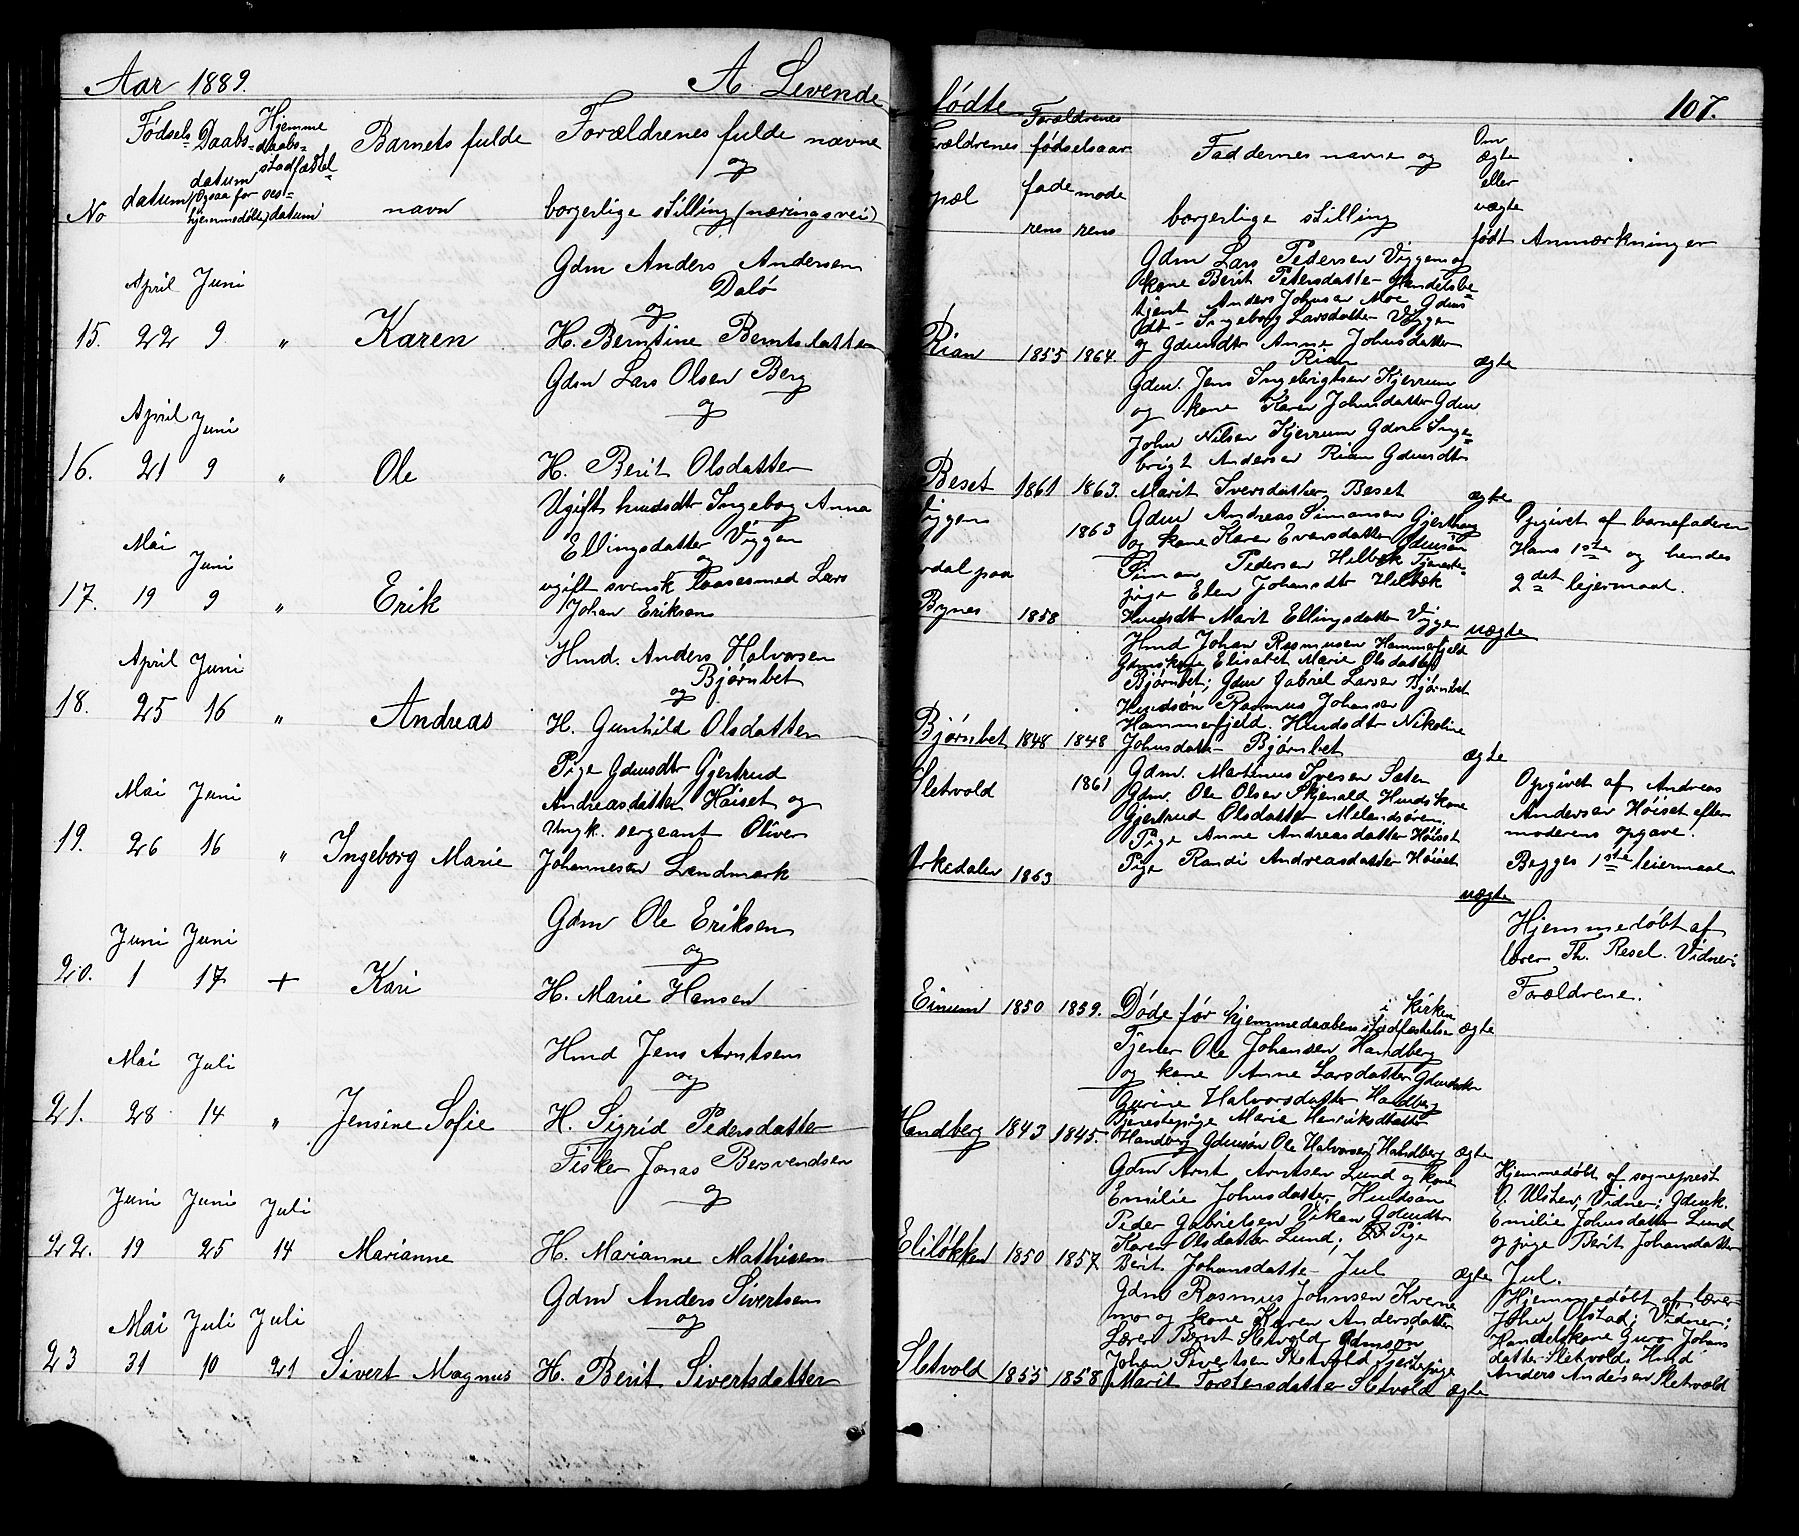 Aar 1889.
A. Levende
Fødsels- datum
Daabs- datum (Ogsaa for hjemmedøbte)
Hjemme daabs- stadfæstel- ses- datum
Barnets fulde navn
Forældrenes fulde navne
og
borgerlige stilling (næringsvei)
No
April Juni
15. 22 9 " Karen
Gdm Anders Andersen
Dalø
og
H. Berntine Berntsdatter
April Juni
16. 21 9 " Ole
Gdm Lars Olsen Berg
og
H. Berit Olsdatter
Mai Juni
17. 19 9 " Erik
Ugift husdt Ingebog Anna
Ellingsdatter Viggen
og
ugift svensk laasesmed Lars
Johan Eriksen
April Juni
18. 25 16 " Andreas
Hmd. Anders Halvorsen
Bjørnbet
og
H. Gunhild Olsdatter
Mai Juni
19. 26 16 " Ingeborg Marie
Pige Gdmsdtr Gjertrud
Andreasdatter Høiset og
Ungk. sergeant Oliver
Johannesen Landmark
Juni Juni
20. 1 17 + Kari
Gdm Ole Eriksen
og
H. Marie Hansen
Mai Juli
21. 28 14 " Jensine Sofie
Hmd Jens Arntsen
og
H. Sigrid Pedersdatter
Juni Juni Juli
22. 19 25 14 Marianne
Fisker Jonas Bersvendsen
og
H. Marianne Mathisen
Mai Juli Juli
23 31 10 21 Sivert Magnus
Gdm Anders Sivertsen
og
H. Berit Sivertsdatter
fødte
107.
orældrenes
pæl
Forældrenes
fødselsaar
fade mode
rens rens
Faddernes navne og
borgerlige stilling
Om
ægte
eller
uægte
født
Anmærkninger
Rian 1855 1864.
Gdm Lars Pedersen Viggen og
kone Berit Petersdatter Handelsbe-
tjent Anders Johnsen Moe Gdms
dt- Ingeborg Larsdatter Viggen
og Gdmsdtr Anne Johnsdatter
Rian
ægte
Beset 1861 1863.
Gdm. Jens Ingebrigtsen Kjerrum
og kone Karen Johnsdatter Gdm
John Nilsen Kjerrum Gdm Inge-
brigt Andersen Rian Gdmsdtr
Marit Iversdatter Beset
ægte
iggen
1863
rdal paa
Bynes 1858
Gdm Andreas Simonsen Gjerthaug
og kone Karen Eversdatter Gdmsøn
Simon Pedersen Hilbek Tjeneste-
pige Elen Johansdtr Hilbek
Husdtr Marit Ellingsdatter Vigge
uægte
Opgivet af barnefaderen
Hans 1ste og hendes
2det leiermaal.
Bjørnbet 1848 1848
Hmd Johan Rasmusen Hammerfjeld
Gdmskone Elisabet Marie Olsdatter
Bjørnbet; Gdm Gabriel Larsen Bjørnbet
Husdsøn Rasmus Johansen
Hammerfjeld. Husdtr Nikoline
Johnsdatter Bjørnbet
ægte
Sletvold 1861
rkedalen 1863
Gdm. Martinus Iversen Sæter
Gdm. Ole Olsen Skjenald Husds kone
Gjertrud Olsdatter Melandsøren,
Pige Anne Andreasdatter Høiset
Pige Randi Andreasdatter Høiset
uægte
Opgivet af Andreas
Andersen Høiset efter
moderens opgave.
Begges 1ste leiermaal
Einum 1850 1859.
Døde før hjemmedaabens stadfæstelse
i kirken
ægte
Hjemmedøbt af
lærer Th. Resel. Vidner:
Forældrene.
Handberg 1843 1845.
Tjener Ole Johansen Handberg
og kone Anne Larsdatter Gdmsdtr
Gurine Halvorsdatter Handberg
Tjenestepige Marie Henriksdatter
Handberg Gdmsøn Ole Halvorsen Handberg
ægte
Eliløkken 1850 1857
Gdm Arnt Arntsen Lund og kone
Emilie Johnsdatter, Husdsøn
Peder Gabrielsen Viken Gdmsdtr
Karen Olsdatter Lund; Pige
Berit Johansdatter Jul
ægte
Hjemmedøbt af sogneprest
O. Ulster, Vidner; Gdmk.
Emilie Johnsdatter Lund
og pige Berit Johansdatter
Jul.
Sletvold 1855 1858
Gdm Rasmus Johnsen Kverne
mo og kone Karen Andersdatter
Lærer Bernt Sletvold Gdmsøn
Johan Sivertsen Sletvold Tjenstepige
Marit Torstensdatter Sletvold
ægte
Hjemmedøbt af lærer
John Olstad; Vidner;
Handelskone Guro Johans
datter Sletvold, Hmd
Anders Andersen Sletvold